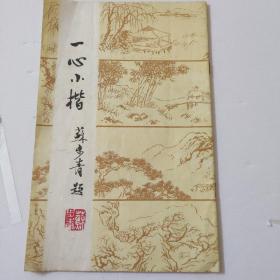 一心小楷
蘇步青題